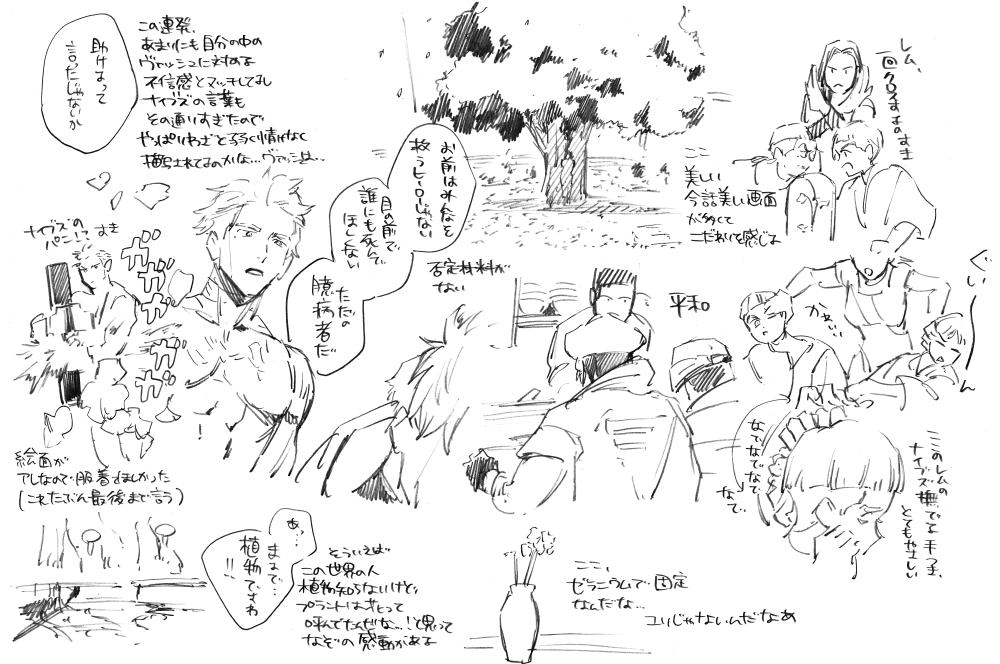 この連発、
あまりにも自分の中の
ヴァッシュに対する
不信感とマッチしてしまい
ナイブズの言葉も
その通りすぎたので
やっぱりわざと子らく情けなく
描写されてるのかな…ヴァッシュは…
助けるって
言ったじゃないか
お前はみんなを
救うヒーローじゃない
目の前で
誰にも死んで
ほしくない
ただの
臆病者だ
否定材料が
ない
ナイブズの
パニック すき
ガガガガ
ガガガ
絵面が
アレなので服着てほしかった
(これたぶん最後まで言う)
レム、
一回クロスするのすき
ここ
美しい
今話美しい画面
が多くて
こだわりを感じる
平和
かわいい
ぐい
ん
なでなでなで
なで
ここのレムの
ナイブズ撫でる手つき、
とてもやさしい
あっ…
まるで…
植物ですわ
!!
そういえば
この世界の人
植物知らないけど、
プラントはプラントって
呼んでたんだな…!と思って
なぞの感動がある
ここ、
ゼラニウムで固定
なんだな…
ユリじゃないんだなあ